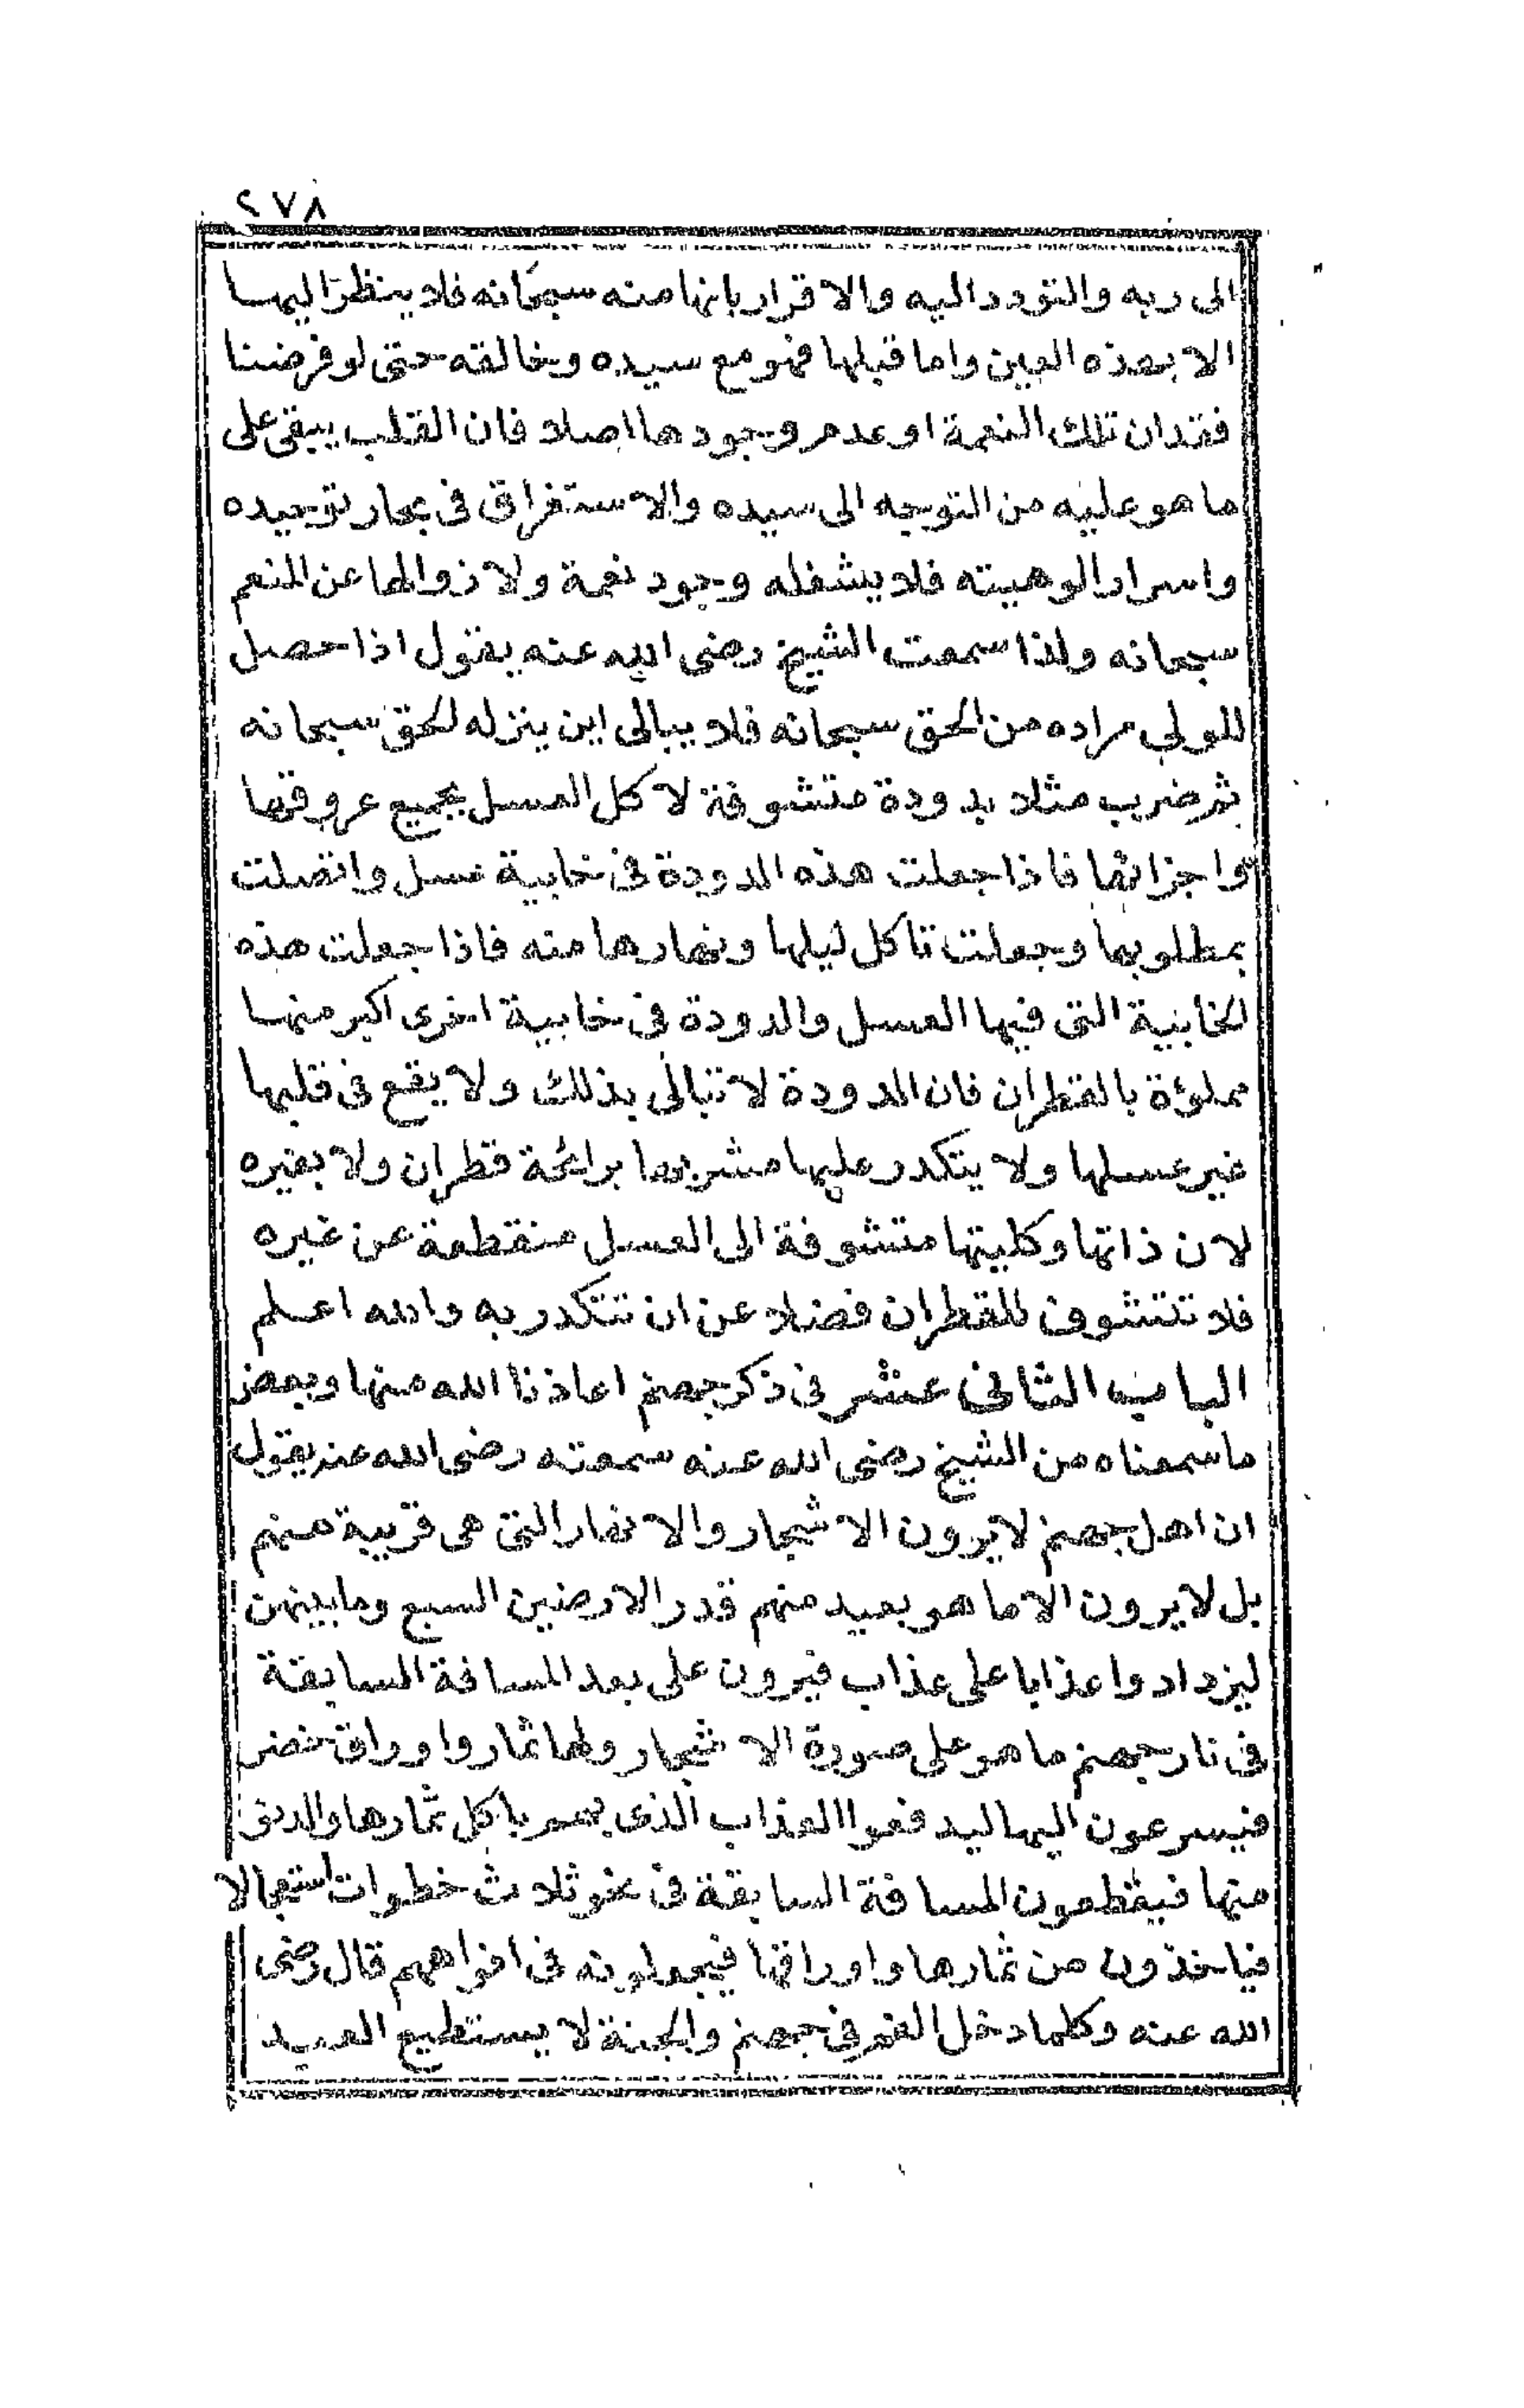 ٢٧٨
الى ربه والتودد اليه والاقرار بانها منه سبحانه فلا ينظر اليها
الا بهذه العين واما قبلها فهو مع سيده وخالقه حتى لو فرضنا
فقدان تلك النعمة او عدم وجودها اصلا فان القلب يبقى على
ما هو عليه من التوجه الى سيده والاستغراق فى بحار توحيده
واسرار الوهيته فلا يشغله وجود نعمة ولا زوالها عن المنعم
سبحانه ولذا سمعت الشيخ رضى الله عنه يقول اذا حصل
للولي مراده من الحق سبحانه فلا يبالى اين ينزله الحق سبحانه
ثم ضرب مثلا بدودة متشوفة لاكل العسل بجميع عروقها
واجزائها فاذا جعلت هذه الدودة فى خابية عسل واتصلت
بمطلوبها وجعلت تاكل ليلها ونهارها منه فاذا جعلت هذه
الخابية التى فيها العسل والدودة فى خابية اخرى اكبر منها
مملؤة بالقطران فان الدودة لا تبالى بذلك ولا يقع فى قلبها
غير عسلها ولا يتكدر عليها مشربها برائحة قطران ولا بغيره
لان ذاتها وكليتها متشوفة الى العسل منقطعة عن غيره
فلا تتشوف للقطران فضلا عن ان تتكدر به والله اعلم
الباب الثانى عشر فى ذكر جهنم اعاذنا الله منها وبعض
ما سمعناه من الشيخ رضى الله عنه سمعته رضى الله عنه يقول
ان اهل جهنم لا يرون الاشجار والانهار التى هى قريبة منهم
بل لا يرون الا ما هو بعيد منهم قدر الارضين السبع وما بينهن
ليزدادوا عذابا على عذاب فيرون على بعد المسافة السابقة
فى نار جهنم ما هو على صورة الاشجار ولها ثمار واوراق خضر
فيسرعون اليها ليدفعوا العذاب الذى بهم باكل ثمارها والدنو
منها فيقطعون المسافة السابقة فى نحو ثلاث خطوات استعجالا
فياخذون من ثمارها واوراقها فيجعلونه فى افواههم قال رضى
الله عنه وكلما دخل الفم فى جهنم والجنة لا يستطيع العبيد